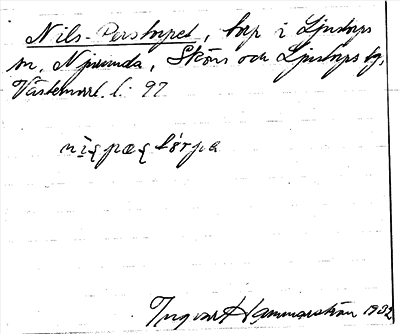 Nils-Perstorpet, torp i Ljustorps
sn, Njurunda, Sköns och Ljustorps tg,
Västernorrl. l. 97
Ingvar Hammarström 1932